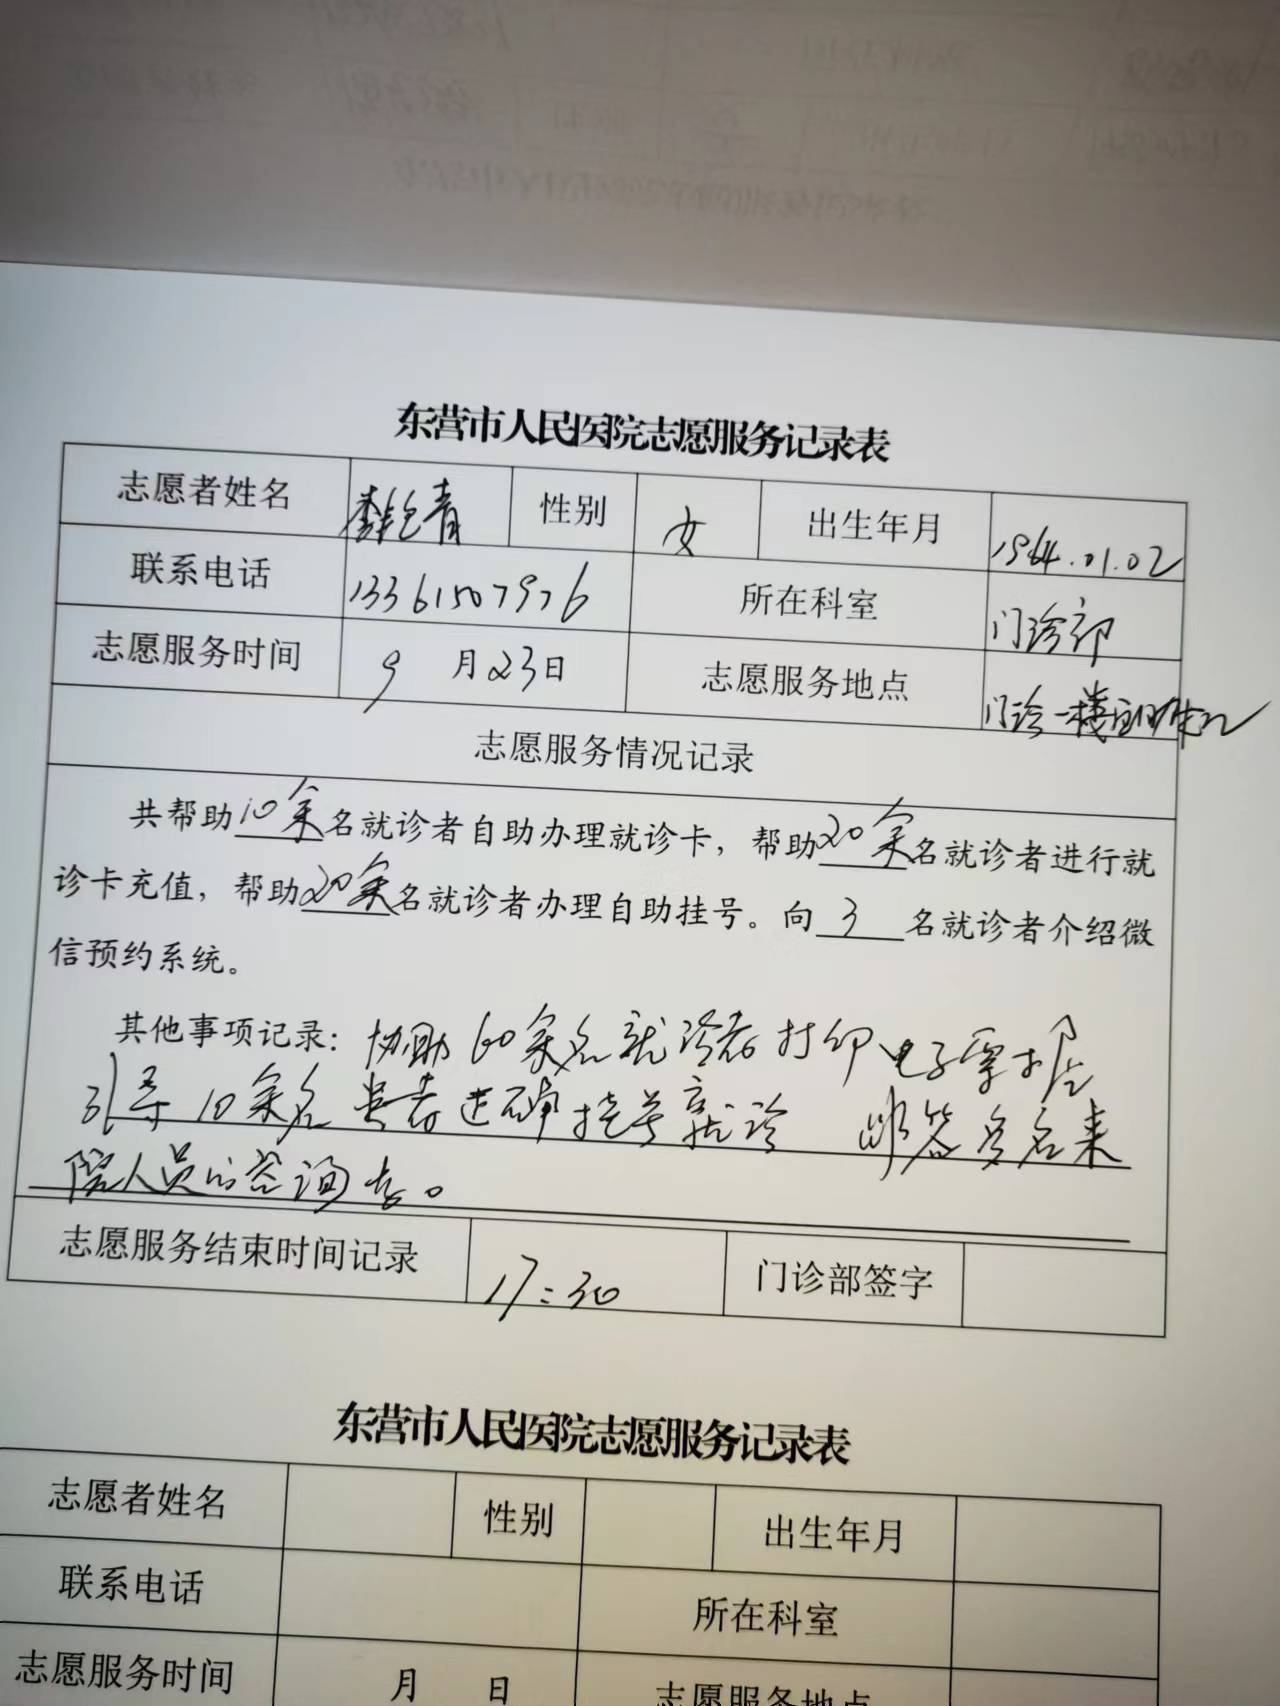 东营市人民医院志愿服务记录表
志愿者姓名 李艳青 性别 女 出生年月 1964.01.02
联系电话 13361507976 所在科室 门诊部
志愿服务时间 9 月 23 日 志愿服务地点 门诊一楼
志愿服务情况记录
共帮助10余名就诊者自助办理就诊卡，帮助20余名就诊者进行就
诊卡充值，帮助20余名就诊者办理自助挂号。向 3 名就诊者介绍微
信预约系统。
其他事项记录：协助60余名就诊者打印电子票据
引导10余名患者正确挂号就诊 解答多名来
院人员的咨询等。
志愿服务结束时间记录 17:30 门诊部签字
东营市人民医院志愿服务记录表
志愿者姓名 性别 出生年月
联系电话 所在科室
志愿服务时间 月 日 志愿服务地点